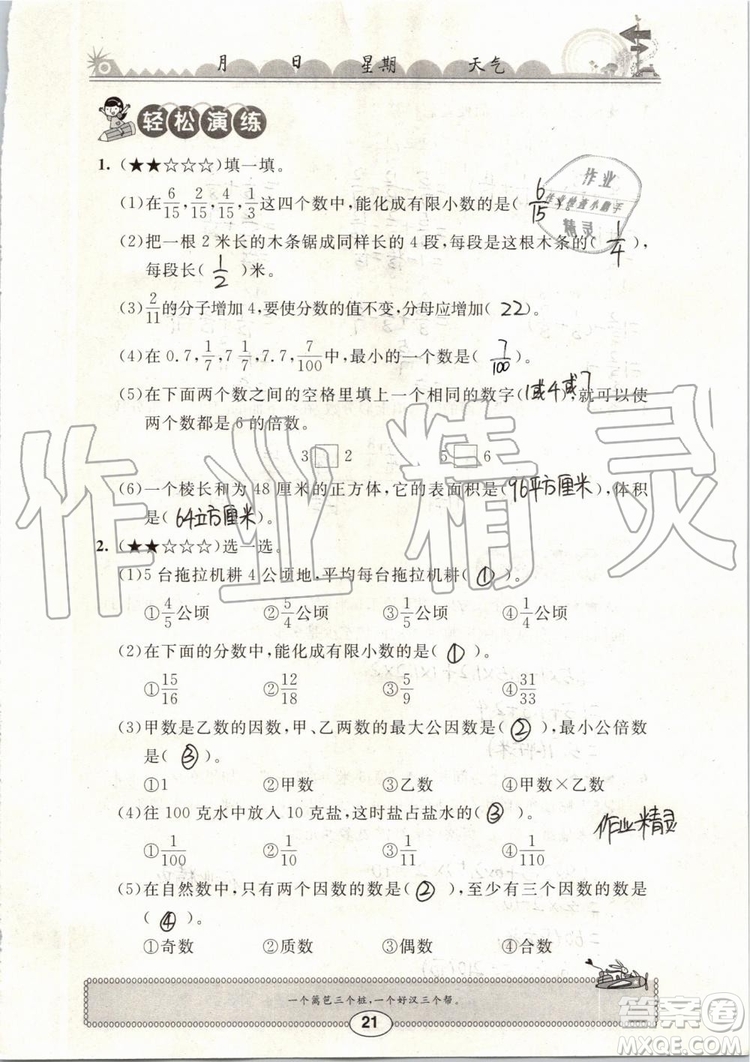 月 日 星期 天气
轻松演练
1. (★★☆☆☆)填一填。
(1)在6/15,2/15,4/15,1/3这四个数中,能化成有限小数的是( 6/15
作业
精灵
(2)把一根 2 米长的木条锯成同样长的 4 段,每段是这根木条的( 1/4 ),
每段长( 1/2 )米。
(3)2/11的分子增加 4,要使分数的值不变,分母应增加( 22 )。
(4)在 0.7,1/7,7/7,7.7,7/100中,最小的一个数是( 7/100 )。
(5)在下面两个数之间的空格里填上一个相同的数字(1或4或7),就可以使
两个数都是 6 的倍数。
3□2 5□6
(6)一个棱长和为 48 厘米的正方体,它的表面积是(96平方厘米),体积
是(64立方厘米)。
2. (★★☆☆☆)选一选。
(1)5 台拖拉机耕 4 公顷地,平均每台拖拉机耕( ① )。
①4/5公顷 ②5/4公顷 ③1/5公顷 ④1/4公顷
(2)在下面的分数中,能化成有限小数的是( ① )。
①15/16 ②12/18 ③5/9 ④31/33
(3)甲数是乙数的因数,甲、乙两数的最大公因数是( ② ),最小公倍数
是( ③ )。
①1 ②甲数 ③乙数 ④甲数×乙数
(4)往 100 克水中放入 10 克盐,这时盐占盐水的( ③ )。
①1/100 ②1/10 ③1/11 ④1/110
作业精灵
(5)在自然数中,只有两个因数的数是( ② ),至少有三个因数的数是
( ④ )。
①奇数 ②质数 ③偶数 ④合数
作业精灵
一个篱笆三个桩,一个好汉三个帮。
21
答案圈
MXQE.COM